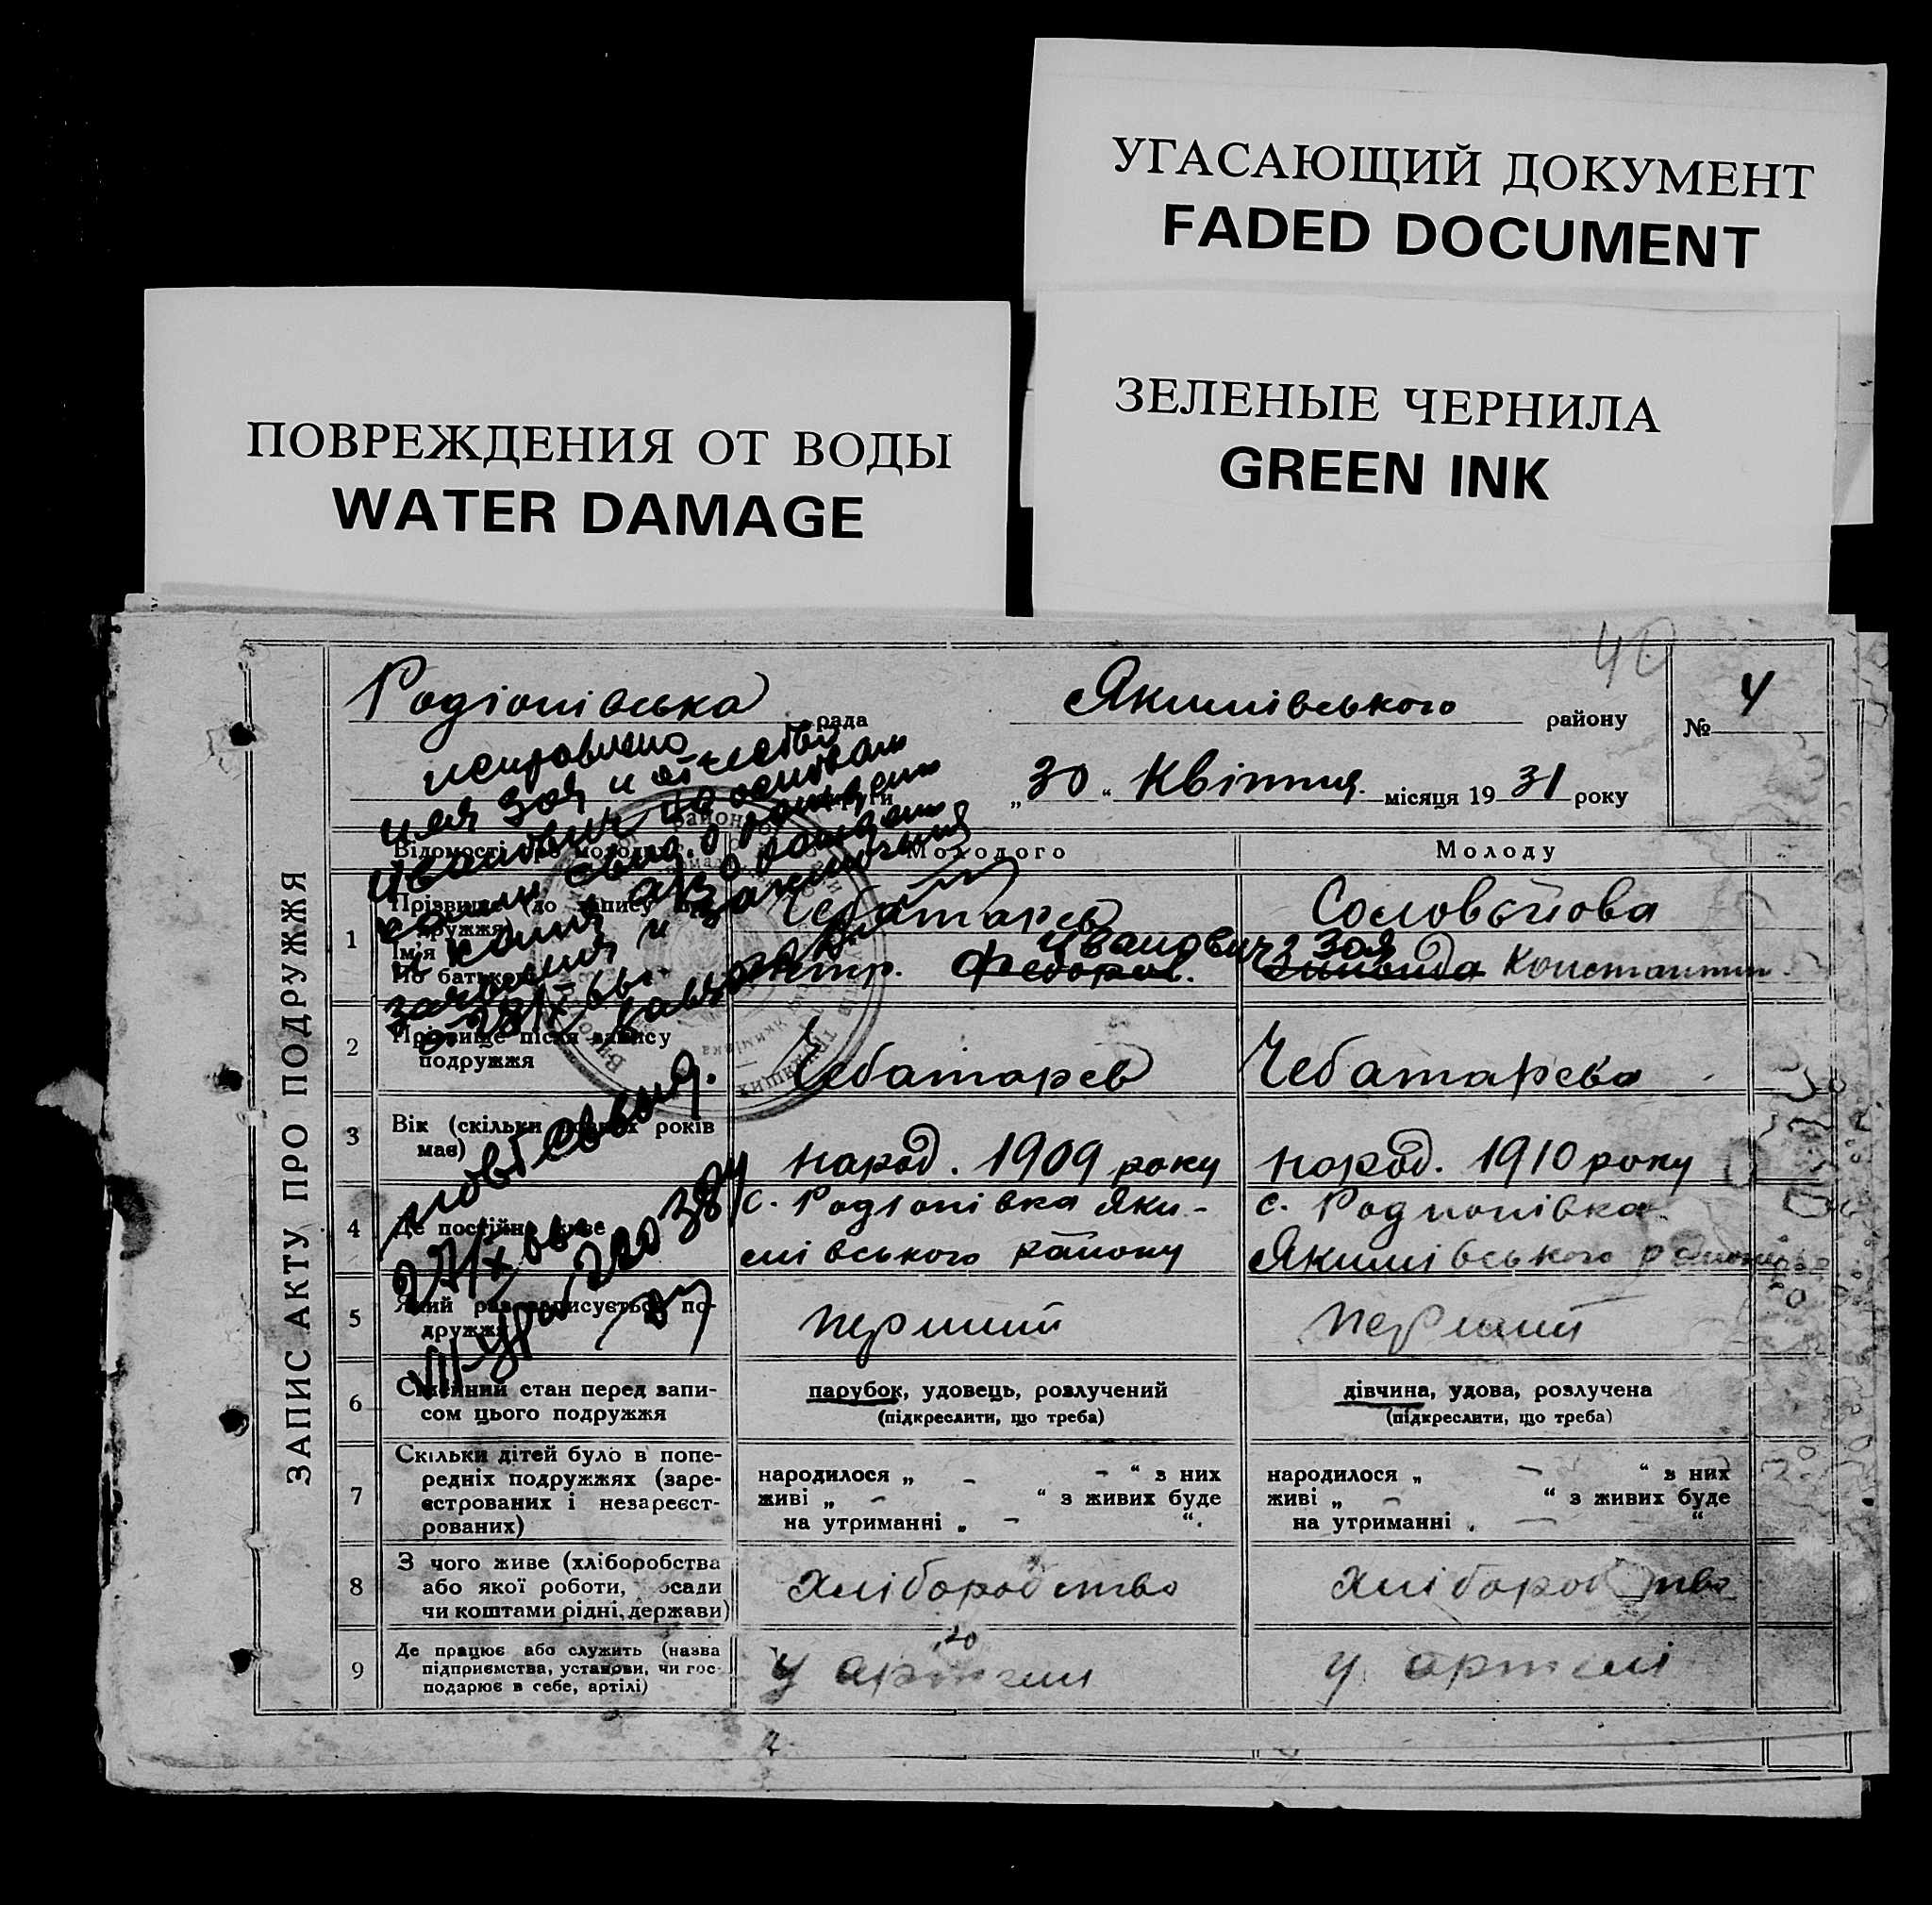 УГАСАЮЩИЙ ДОКУМЕНТ
FADED DOCUMENT
ЗЕЛЕНЫЕ ЧЕРНИЛА
GREEN INK
ПОВРЕЖДЕНИЯ ОТ ВОДЫ
WATER DAMAGE
40
ЗАПИС АКТУ ПРО ПОДРУЖЖЯ
Родіонівська рада Якимівського району № 4
„30“ Квітня місяця 1931 року
исправлено
имя Зоя и отчество
Иванович на основан
свид. о рожден
и копия а/з о рожден
заключения
27/IX
Молодого Молоду
1 Прізвище (до запису подружжя) Чебатарев Соловьйова
Ім'я
По батькові Петр. Федоров. Иванович Зоя Зинаида Константин.
2 Прізвище після запису подружжя Чебатарев Чебатарева
3 Вік (скільки повних років має) народ. 1909 року народ. 1910 року
4 Де постійно живе с. Родіонівка Яки-
мівського району
с. Родионівка
Якимівського району
5 Який раз записується подружжя перший перший
6 Сімейний стан перед запи-
сом цього подружжя
парубок, удовець, розлучений
(підкреслити, що треба)
дівчина, удова, розлучена
(підкреслити, що треба)
7 Скільки дітей було в попе-
редніх подружжях (заре-
єстрованих і незареєст-
рованих)
народилося „ - - “ з них
живі „ - “ з живих буде
на утриманні „ - “.
народилося „ - “ з них
живі „ - “ з живих буде
на утриманні „ - “
8 З чого живе (хліборобства
або якої роботи, посади
чи коштами рідні, держави)
хліборобство хліборобство
9 Де працює або служить (назва
підприємства, установи, чи гос-
подарює в себе, артілі)
у артелі у артелі